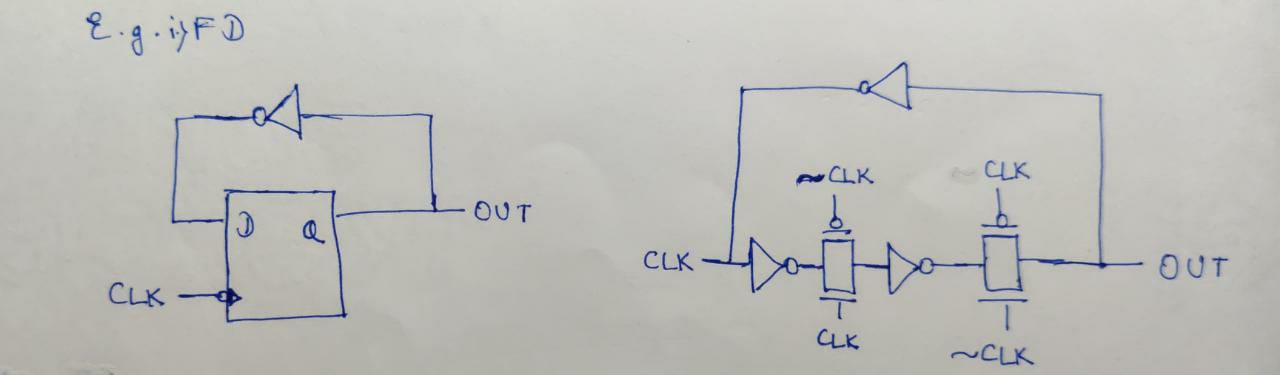 E.g. i) FD
D Q
OUT
CLK
~CLK
CLK
CLK
OUT
CLK
~CLK